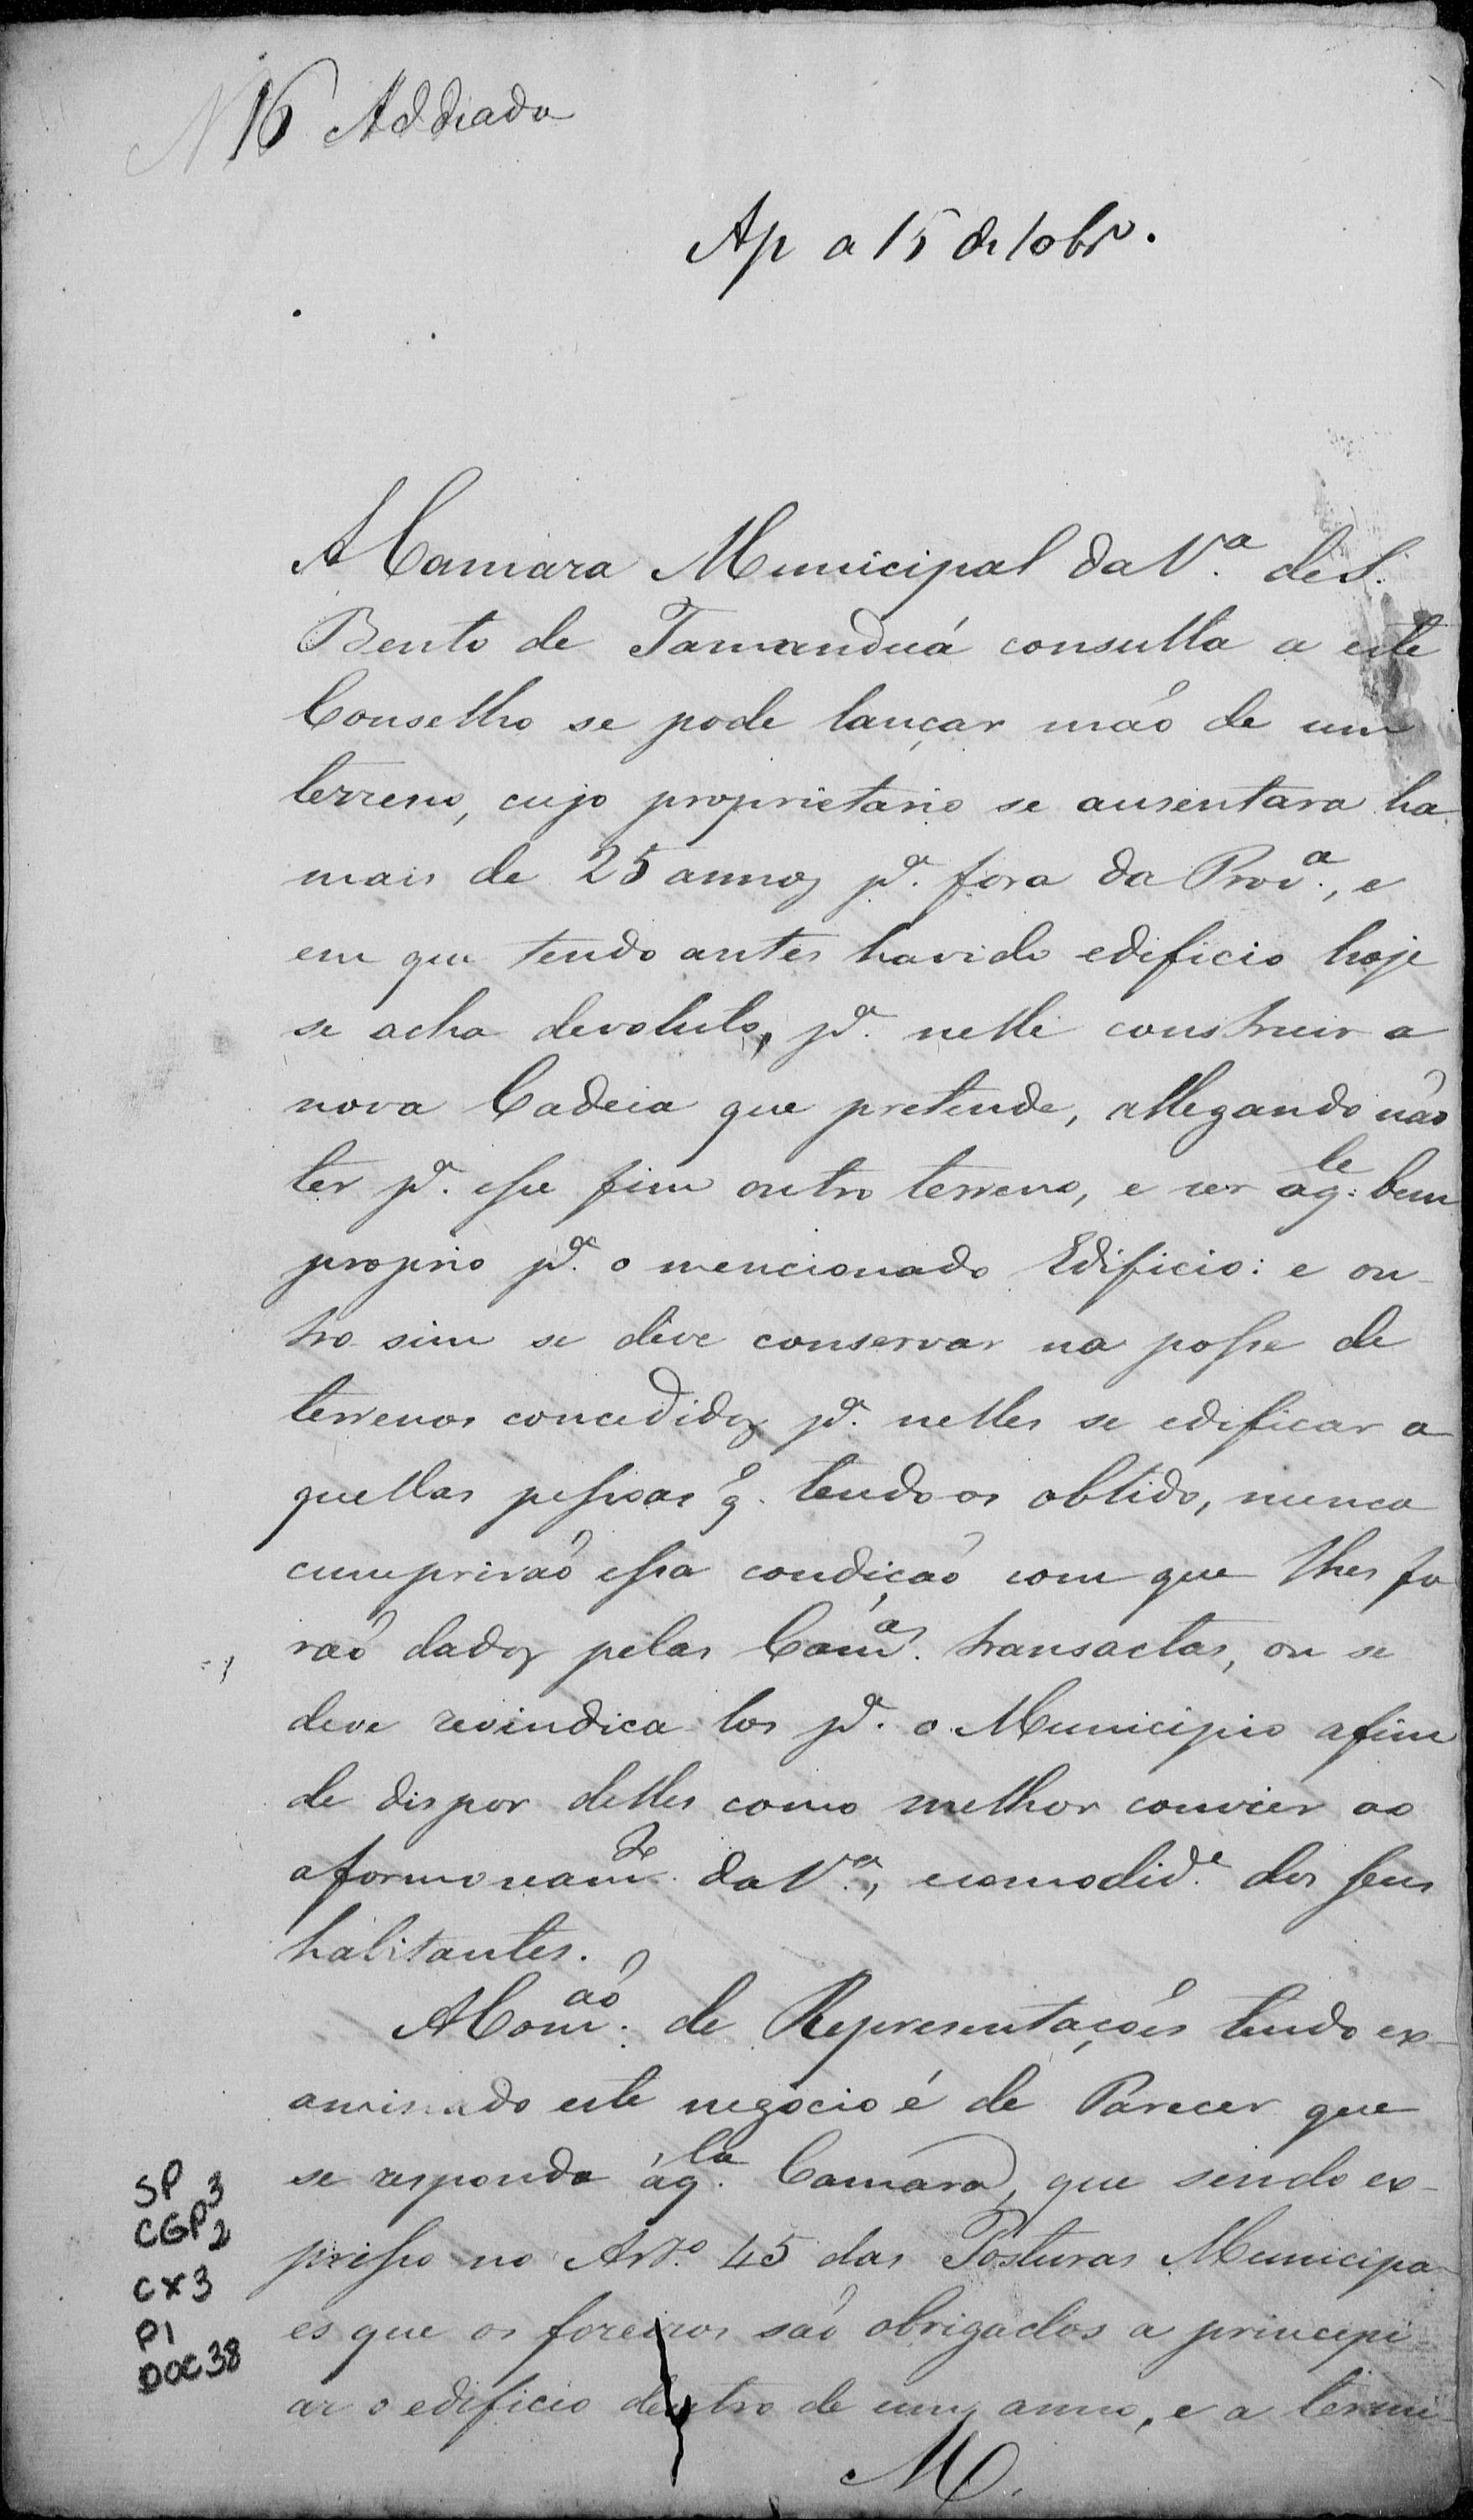 N 16 Addiado
Ap a 15 de 10br.º
A Camara Municipal da V.ª de S.
Bento de Tamanduá consulta a este
Conselho se pode lançar maõ de um
terreno, cujo proprietario se ausentara ha
mais de 25 annos p.ª fora da Prov.ª, e
em que tendo antes havido edificio hoje
se acha devoluto, p.ª nelle construir a
nova Cadeia que pretende, allegando naõ
ter p.ª esse fim outro terreno, e ser aq.le bem
proprio p.ª o mencionado Edificio: e ou-
tro sim se deve conservar na posse de
terrenos concedidos p.ª nelles se edificar a
quellas pessoas q. tendo os obtido, nunca
cumpriraõ essa condiçaõ com que lhes fo
raõ dados pelas Cam.as transactas, ou se
deve revindica-los p.ª o Municipio afim
de dispor delles como melhor convier ao
aformoseam.to da V.ª, e comodid.e dos seus
habitantes.
A Com.aõ de Representaçoẽs tendo ex-
aminado este negocio é de Parecer que
se responda áq.la Camara, que sendo ex-
presso no Art.º 45 das Posturas Municipa-
es que os foreiros saõ obrigados a principi-
ar o edificio dentro de um anno, e a termi-
SP 3
CGP 2
CX3
P1
DOC 38